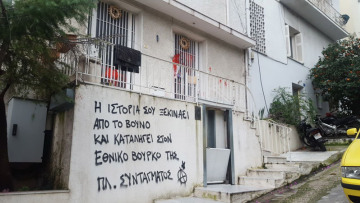 Η ΙΣΤΟΡΙΑ ΣΟΥ ΞΕΚΙΝΑΕΙ
ΑΠΟ ΤΟ ΒΟΥΝΟ
ΚΑΙ ΚΑΤΑΛΗΓΕΙ ΣΤΟΝ
ΕΘΝΙΚΟ ΒΟΥΡΚΟ ΤΗΣ
ΠΛ. ΣΥΝΤΑΓΜΑΤΟΣ